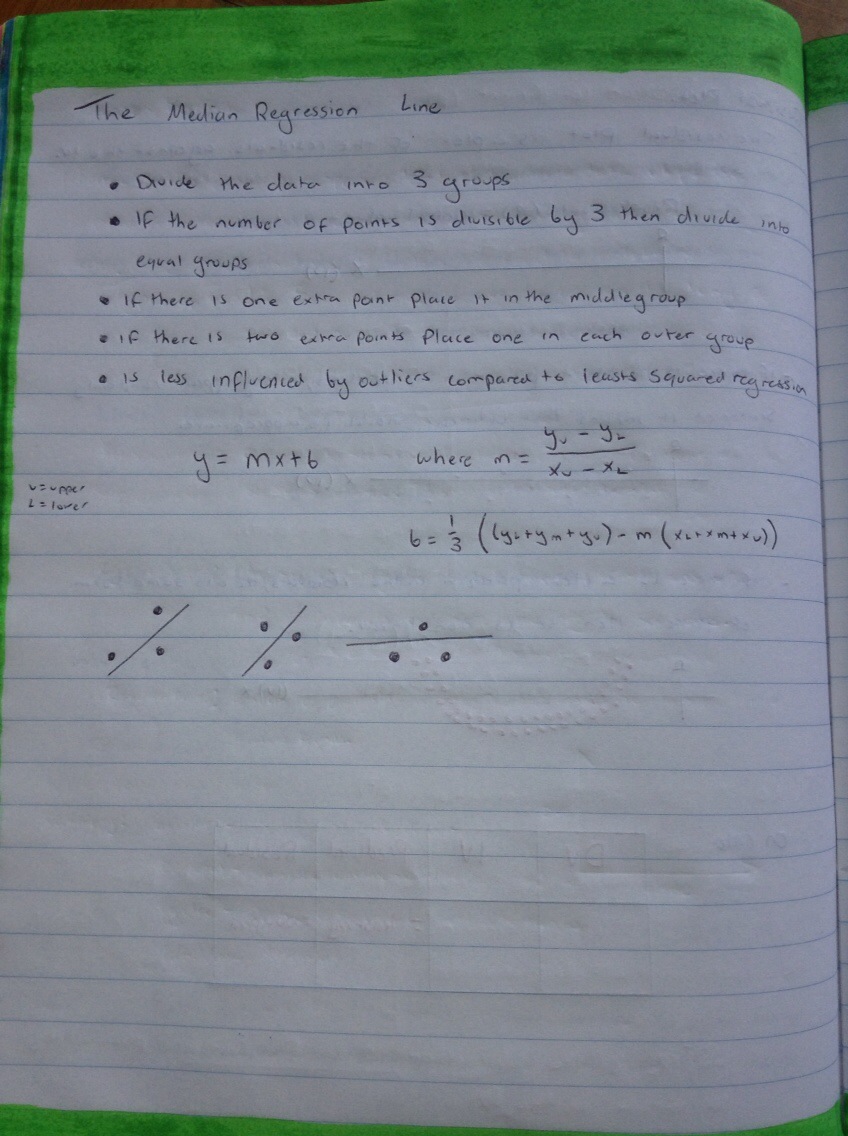 The Median Regression Line
• Divide the data into 3 groups
• If the number of points is divisible by 3 then divide into
equal groups
• If there is one extra point place it in the middle group
• if there is two extra points Place one in each outer group
• is less influenced by outliers compared to leasts squared regression
y = mx+b where m = (y_U - y_L)/(x_U - x_L)
U = upper
L = lower
b = 1/3 ((y_L + y_m + y_U) - m (x_L + x_m + x_U))